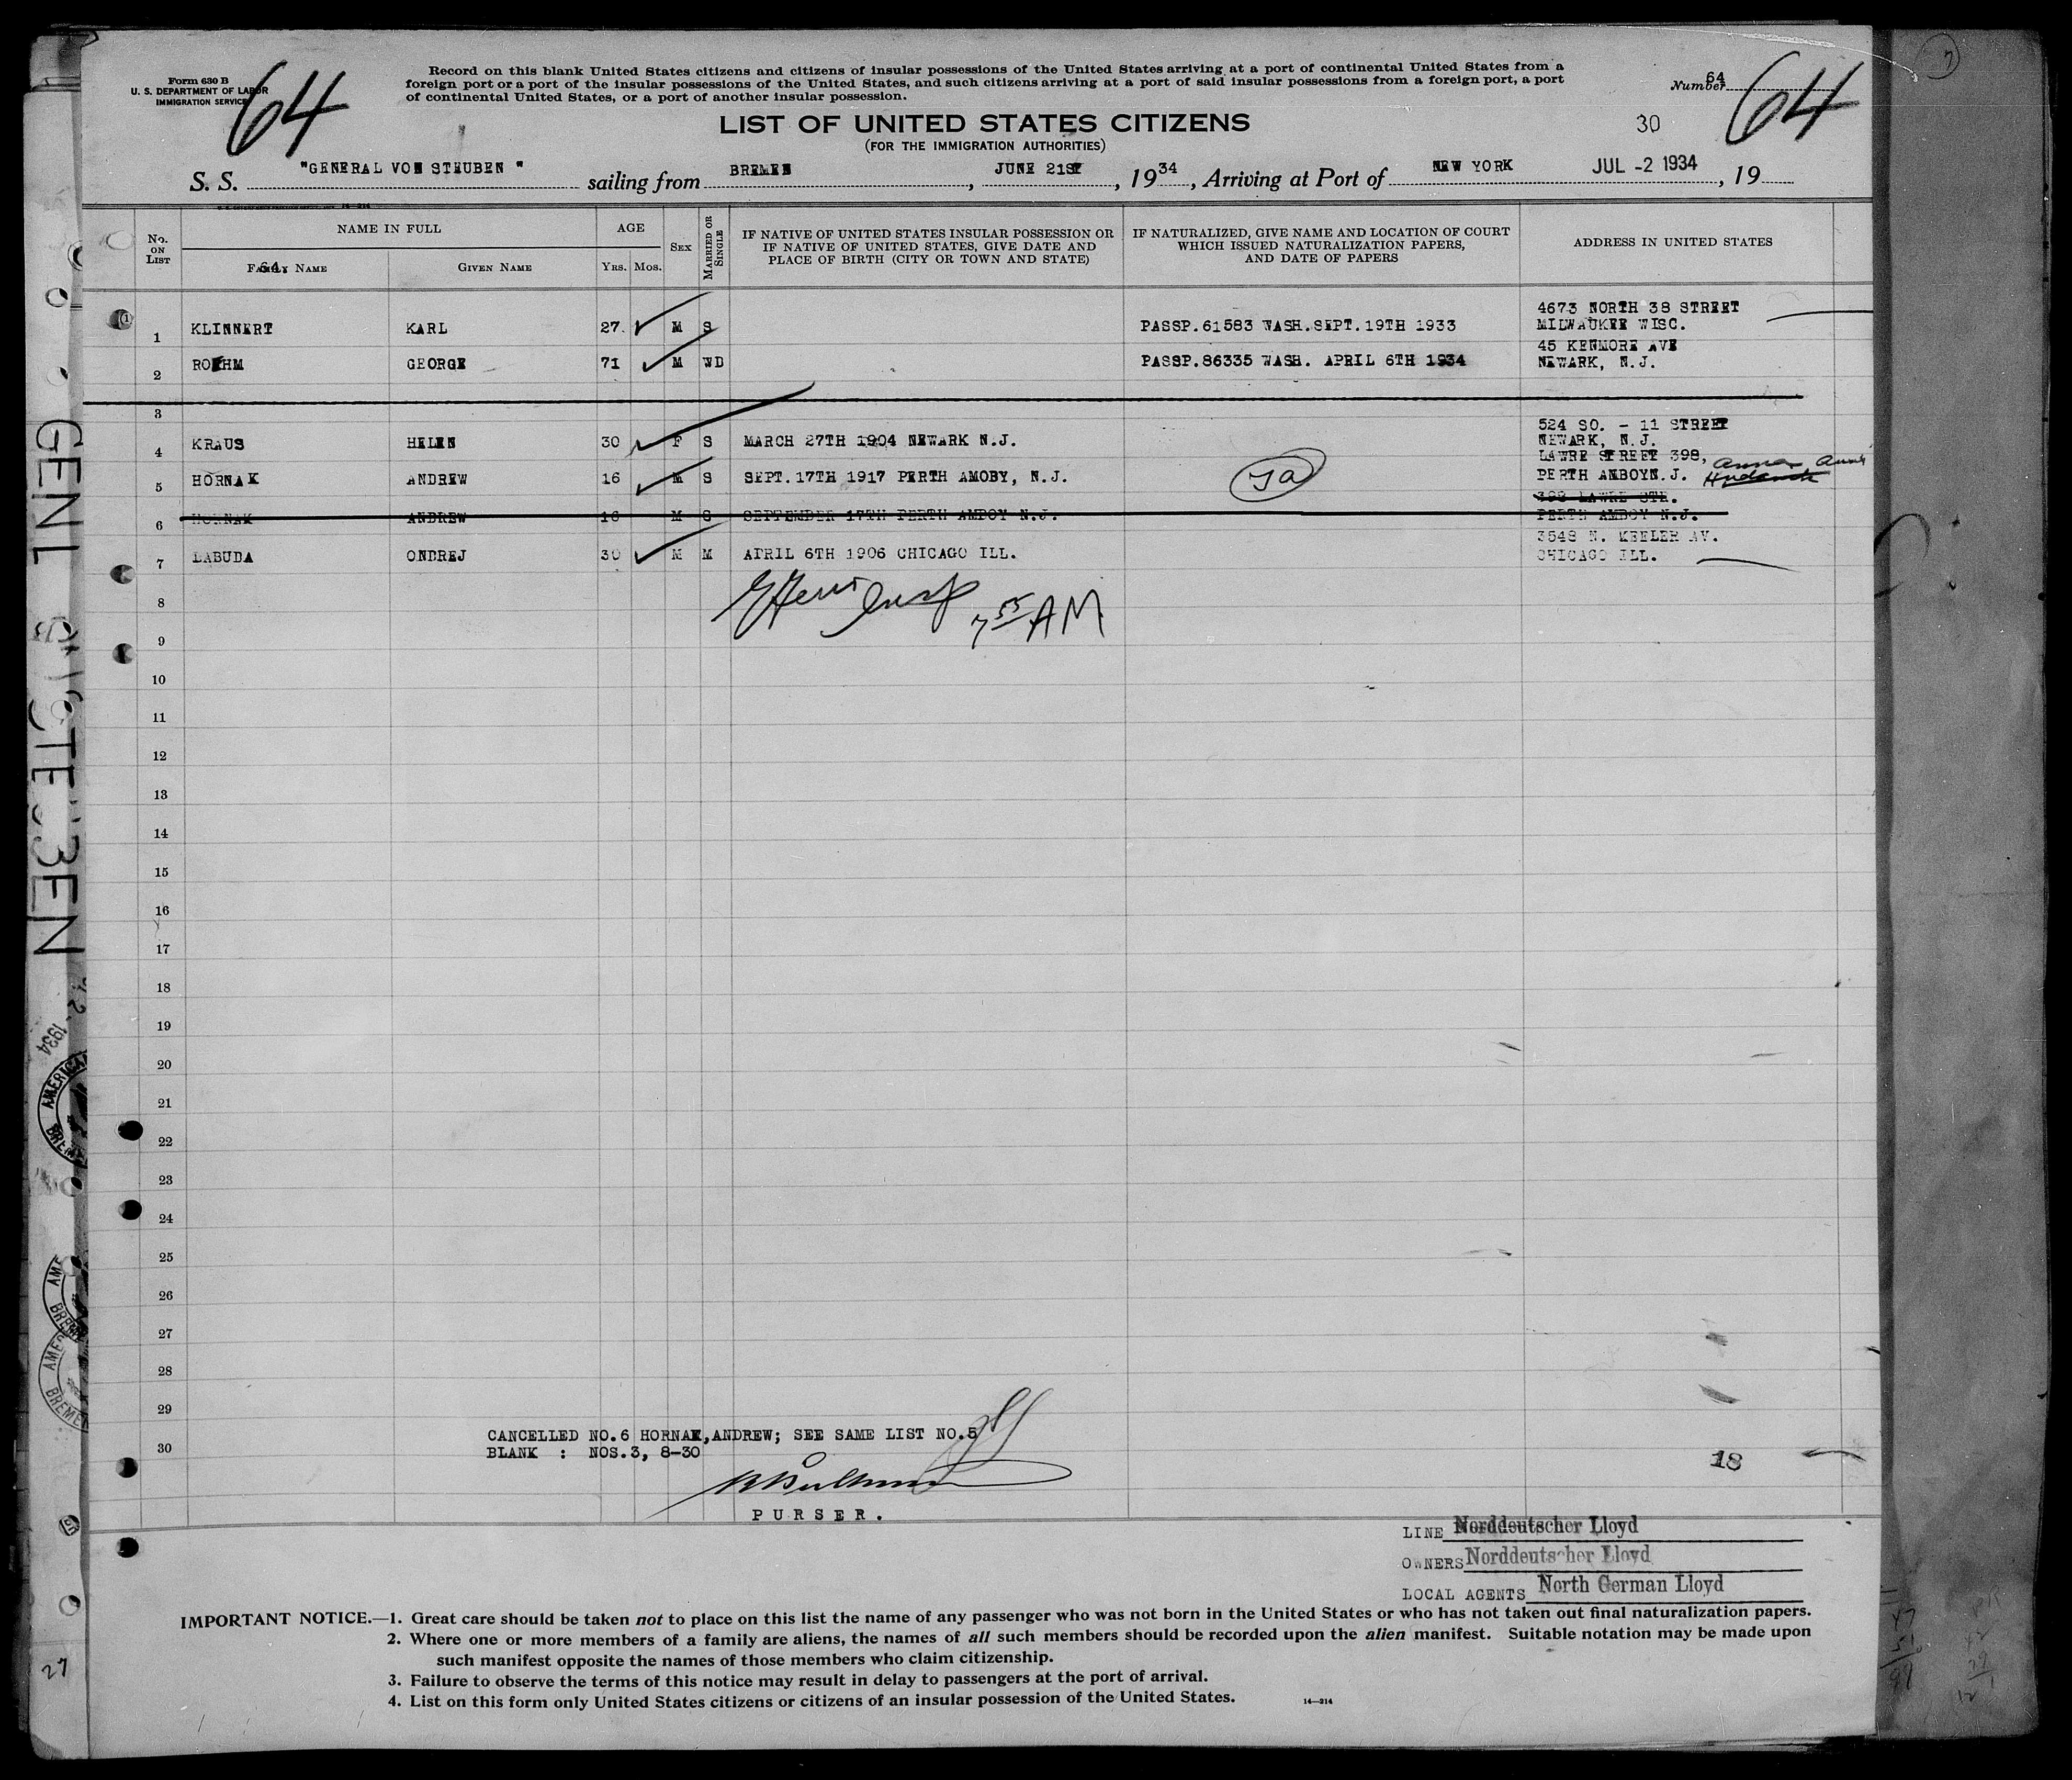 Form 630 B
U. S. DEPARTMENT OF LABOR
IMMIGRATION SERVICE
64
Record on this blank United States citizens and citizens of insular possessions of the United States arriving at a port of continental United States from a
foreign port or a port of the insular possessions of the United States, and such citizens arriving at a port of said insular possessions from a foreign port, a port
of continental United States, or a port of another insular possession.
Number 64
64
LIST OF UNITED STATES CITIZENS
30
(FOR THE IMMIGRATION AUTHORITIES)
S. S. "GENERAL VON STEUBEN" sailing from BREMEN, JUNE 21ST, 1934, Arriving at Port of NEW YORK JUL -2 1934, 19
No. ON LIST NAME IN FULL AGE SEX MARRIED OR SINGLE IF NATIVE OF UNITED STATES INSULAR POSSESSION OR IF NATIVE OF UNITED STATES, GIVE DATE AND PLACE OF BIRTH (CITY OR TOWN AND STATE) IF NATURALIZED, GIVE NAME AND LOCATION OF COURT WHICH ISSUED NATURALIZATION PAPERS, AND DATE OF PAPERS ADDRESS IN UNITED STATES
64. FAMILY NAME GIVEN NAME YRS. MOS.
4673 NORTH 38 STREET
1 KLINNERT KARL 27 M S PASSP.61583 WASH.SEPT.19TH 1933 MILWAUKEE WISC.
45 KENMORE AVE
2 ROEHM GEORGE 71 M WD PASSP.86335 WASH. APRIL 6TH 1934 NEWARK, N.J.
3
524 SO. - 11 STREET
4 KRAUS HELEN 30 F S MARCH 27TH 1904 NEWARK N.J. NEWARK, N.J.
LAWRE STREET 398,
5 HORNAK ANDREW 16 M S SEPT.17TH 1917 PERTH AMOBY, N.J. PERTH AMBOYN.J.
398 LAWRE STR.
6 HORNAK ANDREW 16 M S SEPTEMBER 17TH PERTH AMBOY N.J. PERTH AMBOY N.J.
3548 N. KEELER AV.
7 LABUDA ONDREJ 30 M M APRIL 6TH 1906 CHICAGO ILL. CHICAGO ILL.
7 55 AM
8
9
10
11
12
13
14
15
16
17
18
19
20
21
22
23
24
25
26
27
28
29
CANCELLED NO.6 HORNAK,ANDREW; SEE SAME LIST NO.5
30 BLANK : NOS.3, 8-30
18
PURSER.
LINE Norddeutscher Lloyd
OWNERS Norddeutscher Lloyd
LOCAL AGENTS North German Lloyd
IMPORTANT NOTICE.—1. Great care should be taken not to place on this list the name of any passenger who was not born in the United States or who has not taken out final naturalization papers.
2. Where one or more members of a family are aliens, the names of all such members should be recorded upon the alien manifest. Suitable notation may be made upon
such manifest opposite the names of those members who claim citizenship.
3. Failure to observe the terms of this notice may result in delay to passengers at the port of arrival.
4. List on this form only United States citizens or citizens of an insular possession of the United States.
14—214
27